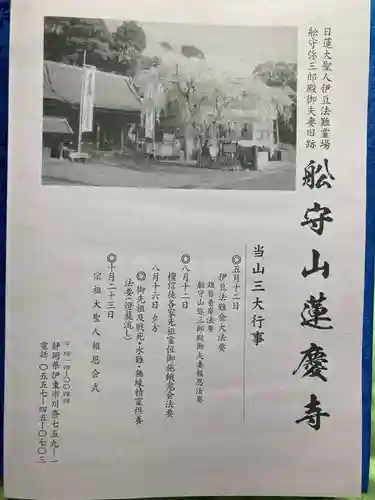 日蓮大聖人伊豆法難霊場
舩守弥三郎殿御夫妻旧跡
舩守山蓮慶寺
当山三大行事
◎五月十二日
伊豆法難会大法要
舩守山弥三郎殿御夫妻報恩法要
◎八月十二日
檀信徒各家先祖霊位御施餓鬼会法要
八月十六日夕方
◎御先祖及戦死・水難・無縁精霊供養
法要(燈籠流し)
◎十月二十三日
宗祖大聖人報恩会式
〒四一四―〇〇四四
静岡県伊東市川奈七五九―一
電話 〇五五七―四五―〇七〇三